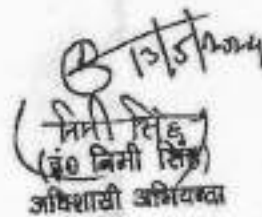 13/5/2024
निमी सिंह
(इं० निमी सिंह)
अधिशासी अभियन्ता